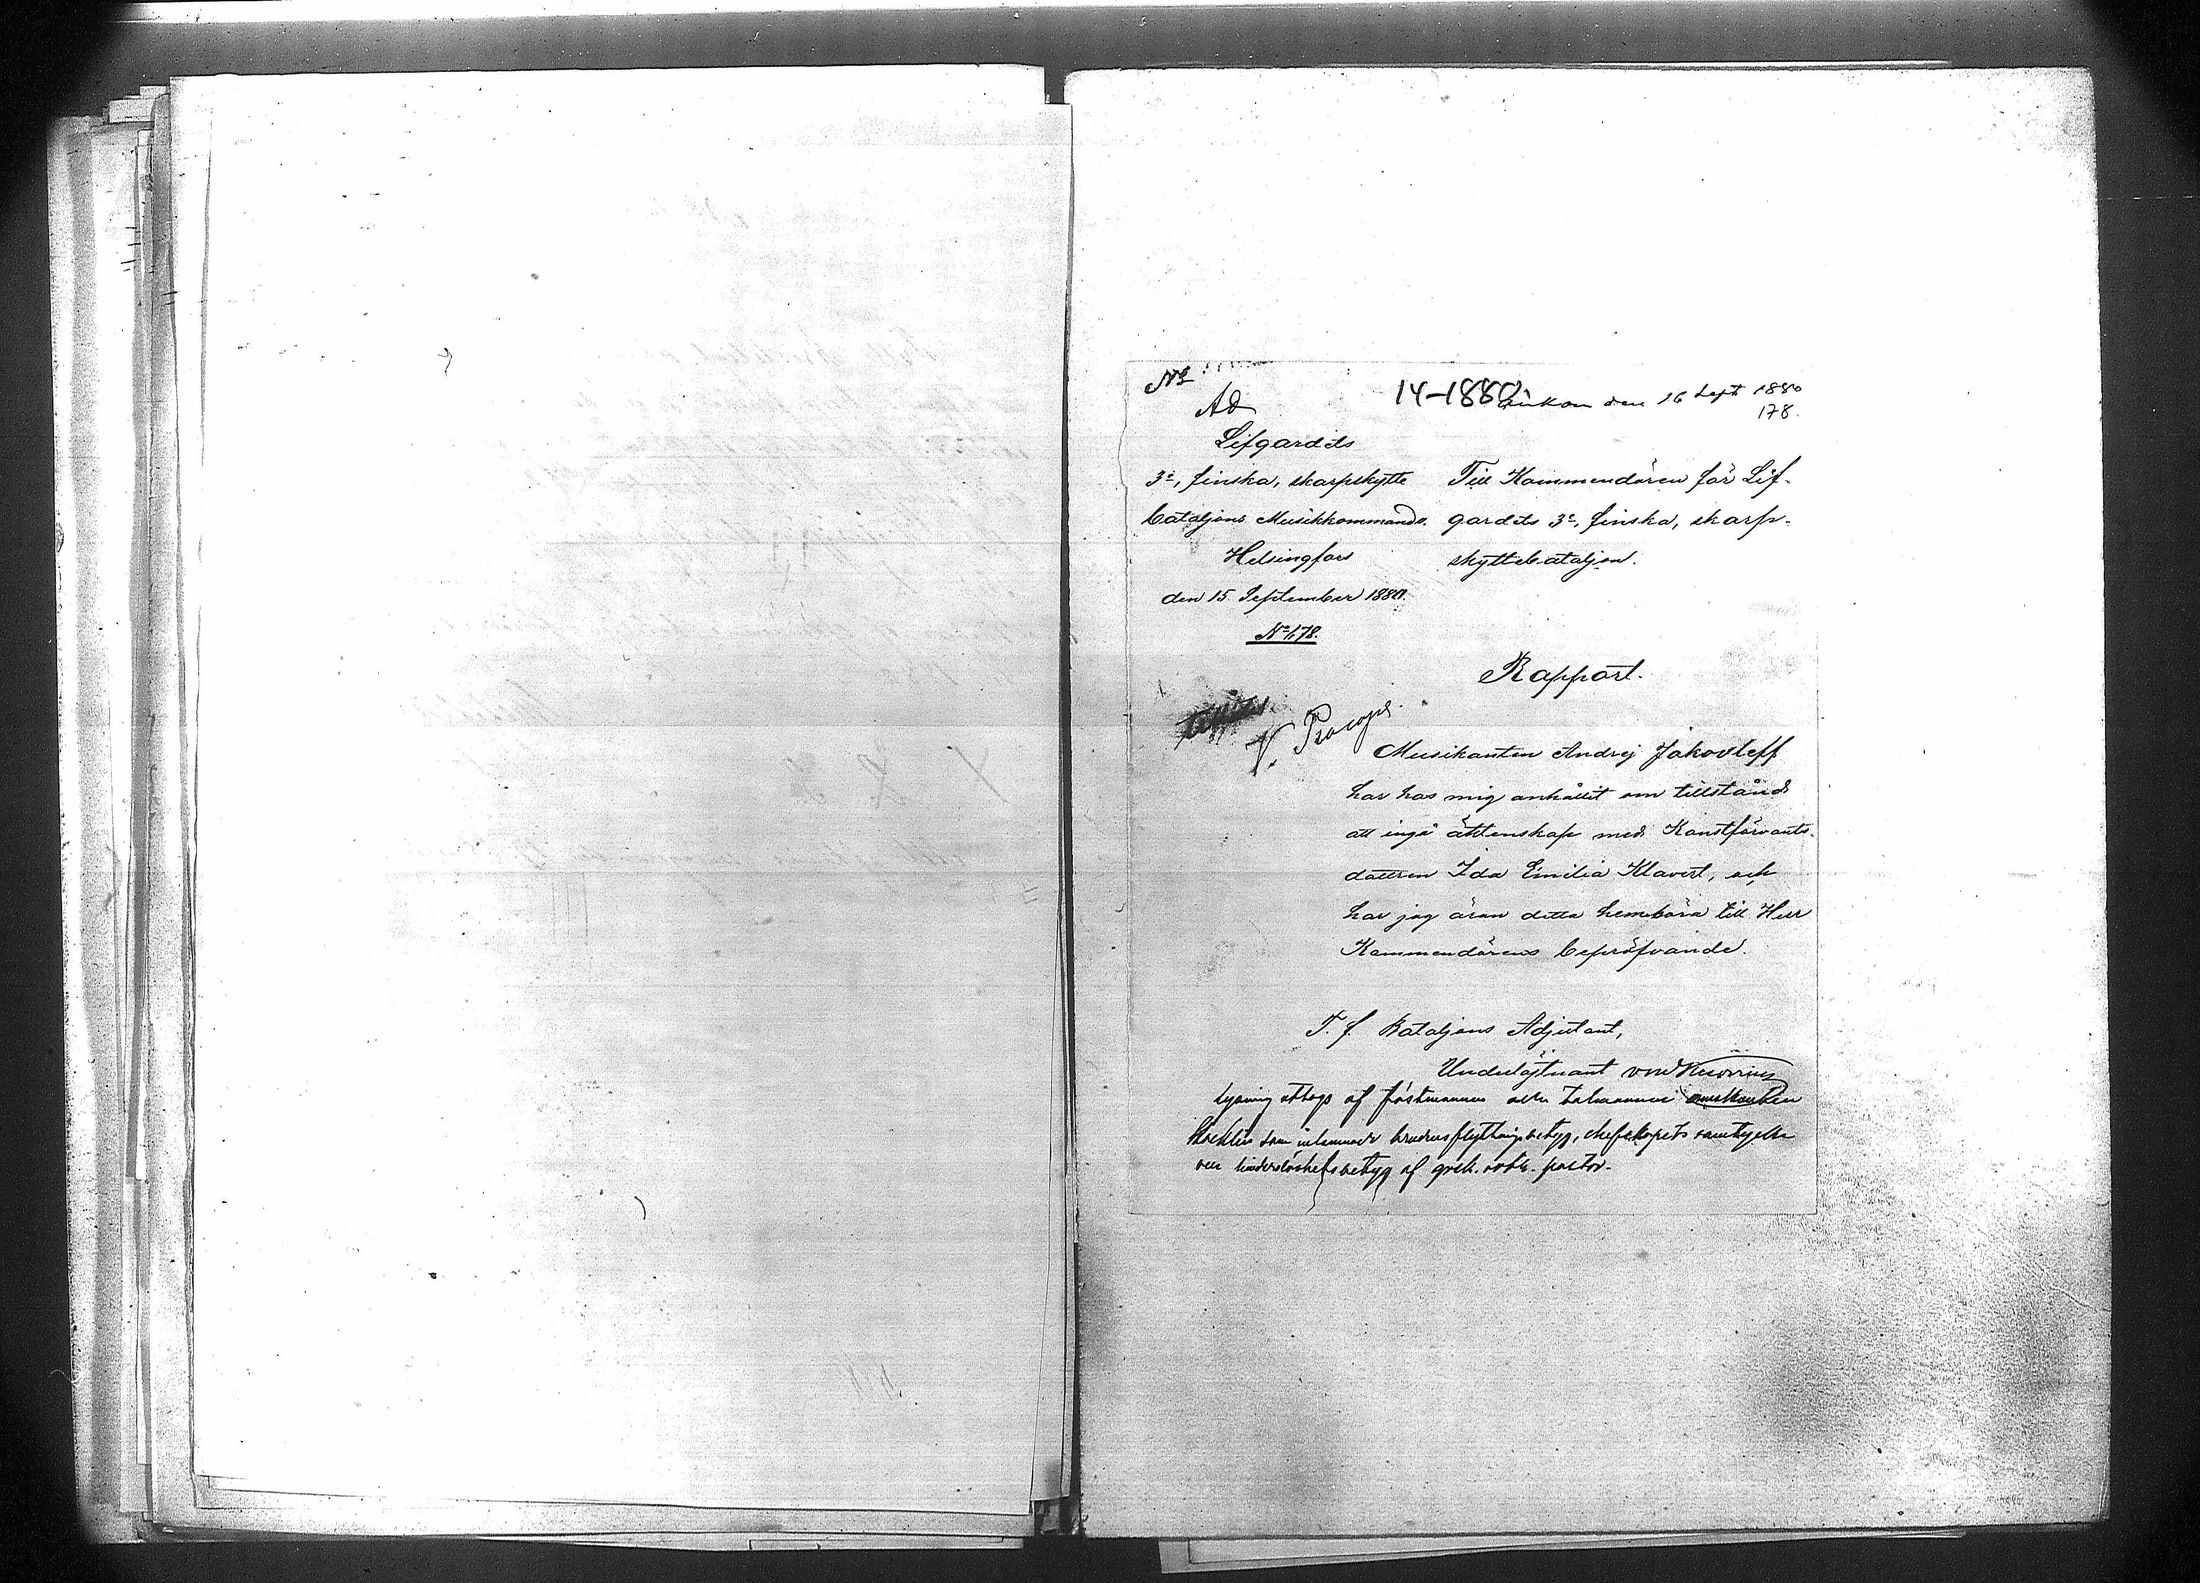 №
14-1880
Ad
Inkom den 16 Sept 1880
178.
Lifgardets
3e, finska, skarpskytte
bataljons Musikkommando.
Helsingfors
den 15 September 1880.
№ 178.
Till Kommendören för Lif-
gardets 3e, finska, skarp-
skyttebataljon.
Rapport.
V. Procopé.
Musikanten Andrej Jakovleff
har hos mig anhållit om tillstånd
att ingå äktenskap med Konstförvants-
dottren Ida Emilia Klavert, och
har jag äran detta hembära till Herr
Kommendörens bepröfvande.
T. f. Bataljons Adjutant,
Underlöjtnant
lysning uttogs af föstmannen och talmannen musikanten
som inlemnade brudens flyttningsbetyg, chefskapets samtycke
och hinderslöshetsbetyg af grek. ortd. pastor.